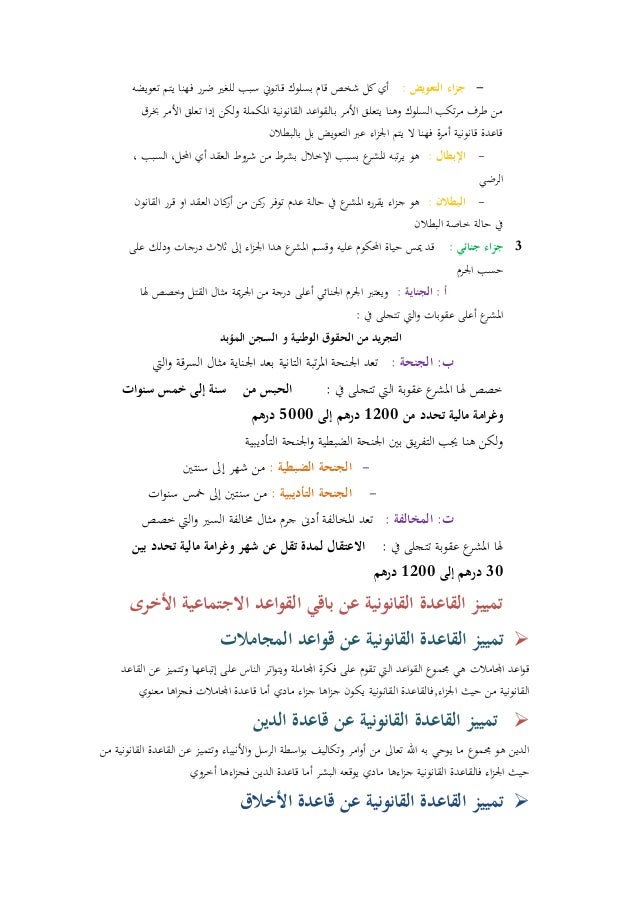 – جزاء التعويض : أي كل شخص قام بسلوك قانوني سبب للغير ضرر فهنا يتم تعويضه
من طرف مرتكب السلوك وهنا يتعلق الأمر بالقواعد القانونية المكملة ولكن إدا تعلق الأمر بخرق
قاعدة قانونية أمرة فهنا لا يتم الجزاء عبر التعويض بل بالبطلان
– الإبطال : هو يرتبه المشرع بسبب الإخلال بشرط من شروط العقد أي المحل، السبب ،
الرضي
– البطلان : هو جزاء يقرره المشرع في حالة عدم توفر ركن من أركان العقد او قرر القانون
في حالة خاصة البطلان
3 جزاء جنائي : قد يمس حياة المحكوم عليه وقسم المشرع هدا الجزاء إلى ثلاث درجات ودلك على
حسب الجرم
أ : الجناية : ويعتبر الجرم الجنائي أعلى درجة من الجريمة مثال القتل وخصص لها
المشرع أعلى عقوبات والتي تتجلى في :
التجريد من الحقوق الوطنية و السجن المؤبد
ب: الجنحة : تعد الجنحة المرتبة الثانية بعد الجناية مثال السرقة والتي
خصص لها المشرع عقوبة التي تتجلى في : الحبس من سنة إلى خمس سنوات
وغرامة مالية تحدد من 1200 درهم إلى 5000 درهم
ولكن هنا يجب التفريق بين الجنحة الضبطية والجنحة التأديبية
– الجنحة الضبطية : من شهر إلى سنتين
– الجنحة التأديبية : من سنتين إلى خمس سنوات
ت: المخالفة : تعد المخالفة أدنى جرم مثال مخالفة السير والتي خصص
لها المشرع عقوبة تتجلى في : الاعتقال لمدة تقل عن شهر وغرامة مالية تحدد بين
30 درهم إلى 1200 درهم
تمييز القاعدة القانونية عن باقي القواعد الاجتماعية الأخرى
➢ تمييز القاعدة القانونية عن قواعد المجاملات
قواعد المجاملات هي مجموع القواعد التي تقوم على فكرة المجاملة ويتواتر الناس على إتباعها وتتميز عن القاعد
القانونية من حيث الجزاء,فالقاعدة القانونية يكون جزاها جزاء مادي أما قاعدة المجاملات فجزاها معنوي
➢ تمييز القاعدة القانونية عن قاعدة الدين
الدين هو مجموع ما يوحي به الله تعالى من أوامر وتكاليف بواسطة الرسل والأنبياء وتتميز عن القاعدة القانونية من
حيث الجزاء فالقاعدة القانونية جزاءها مادي يوقعه البشر أما قاعدة الدين فجزاءها أخروي
➢ تمييز القاعدة القانونية عن قاعدة الأخلاق